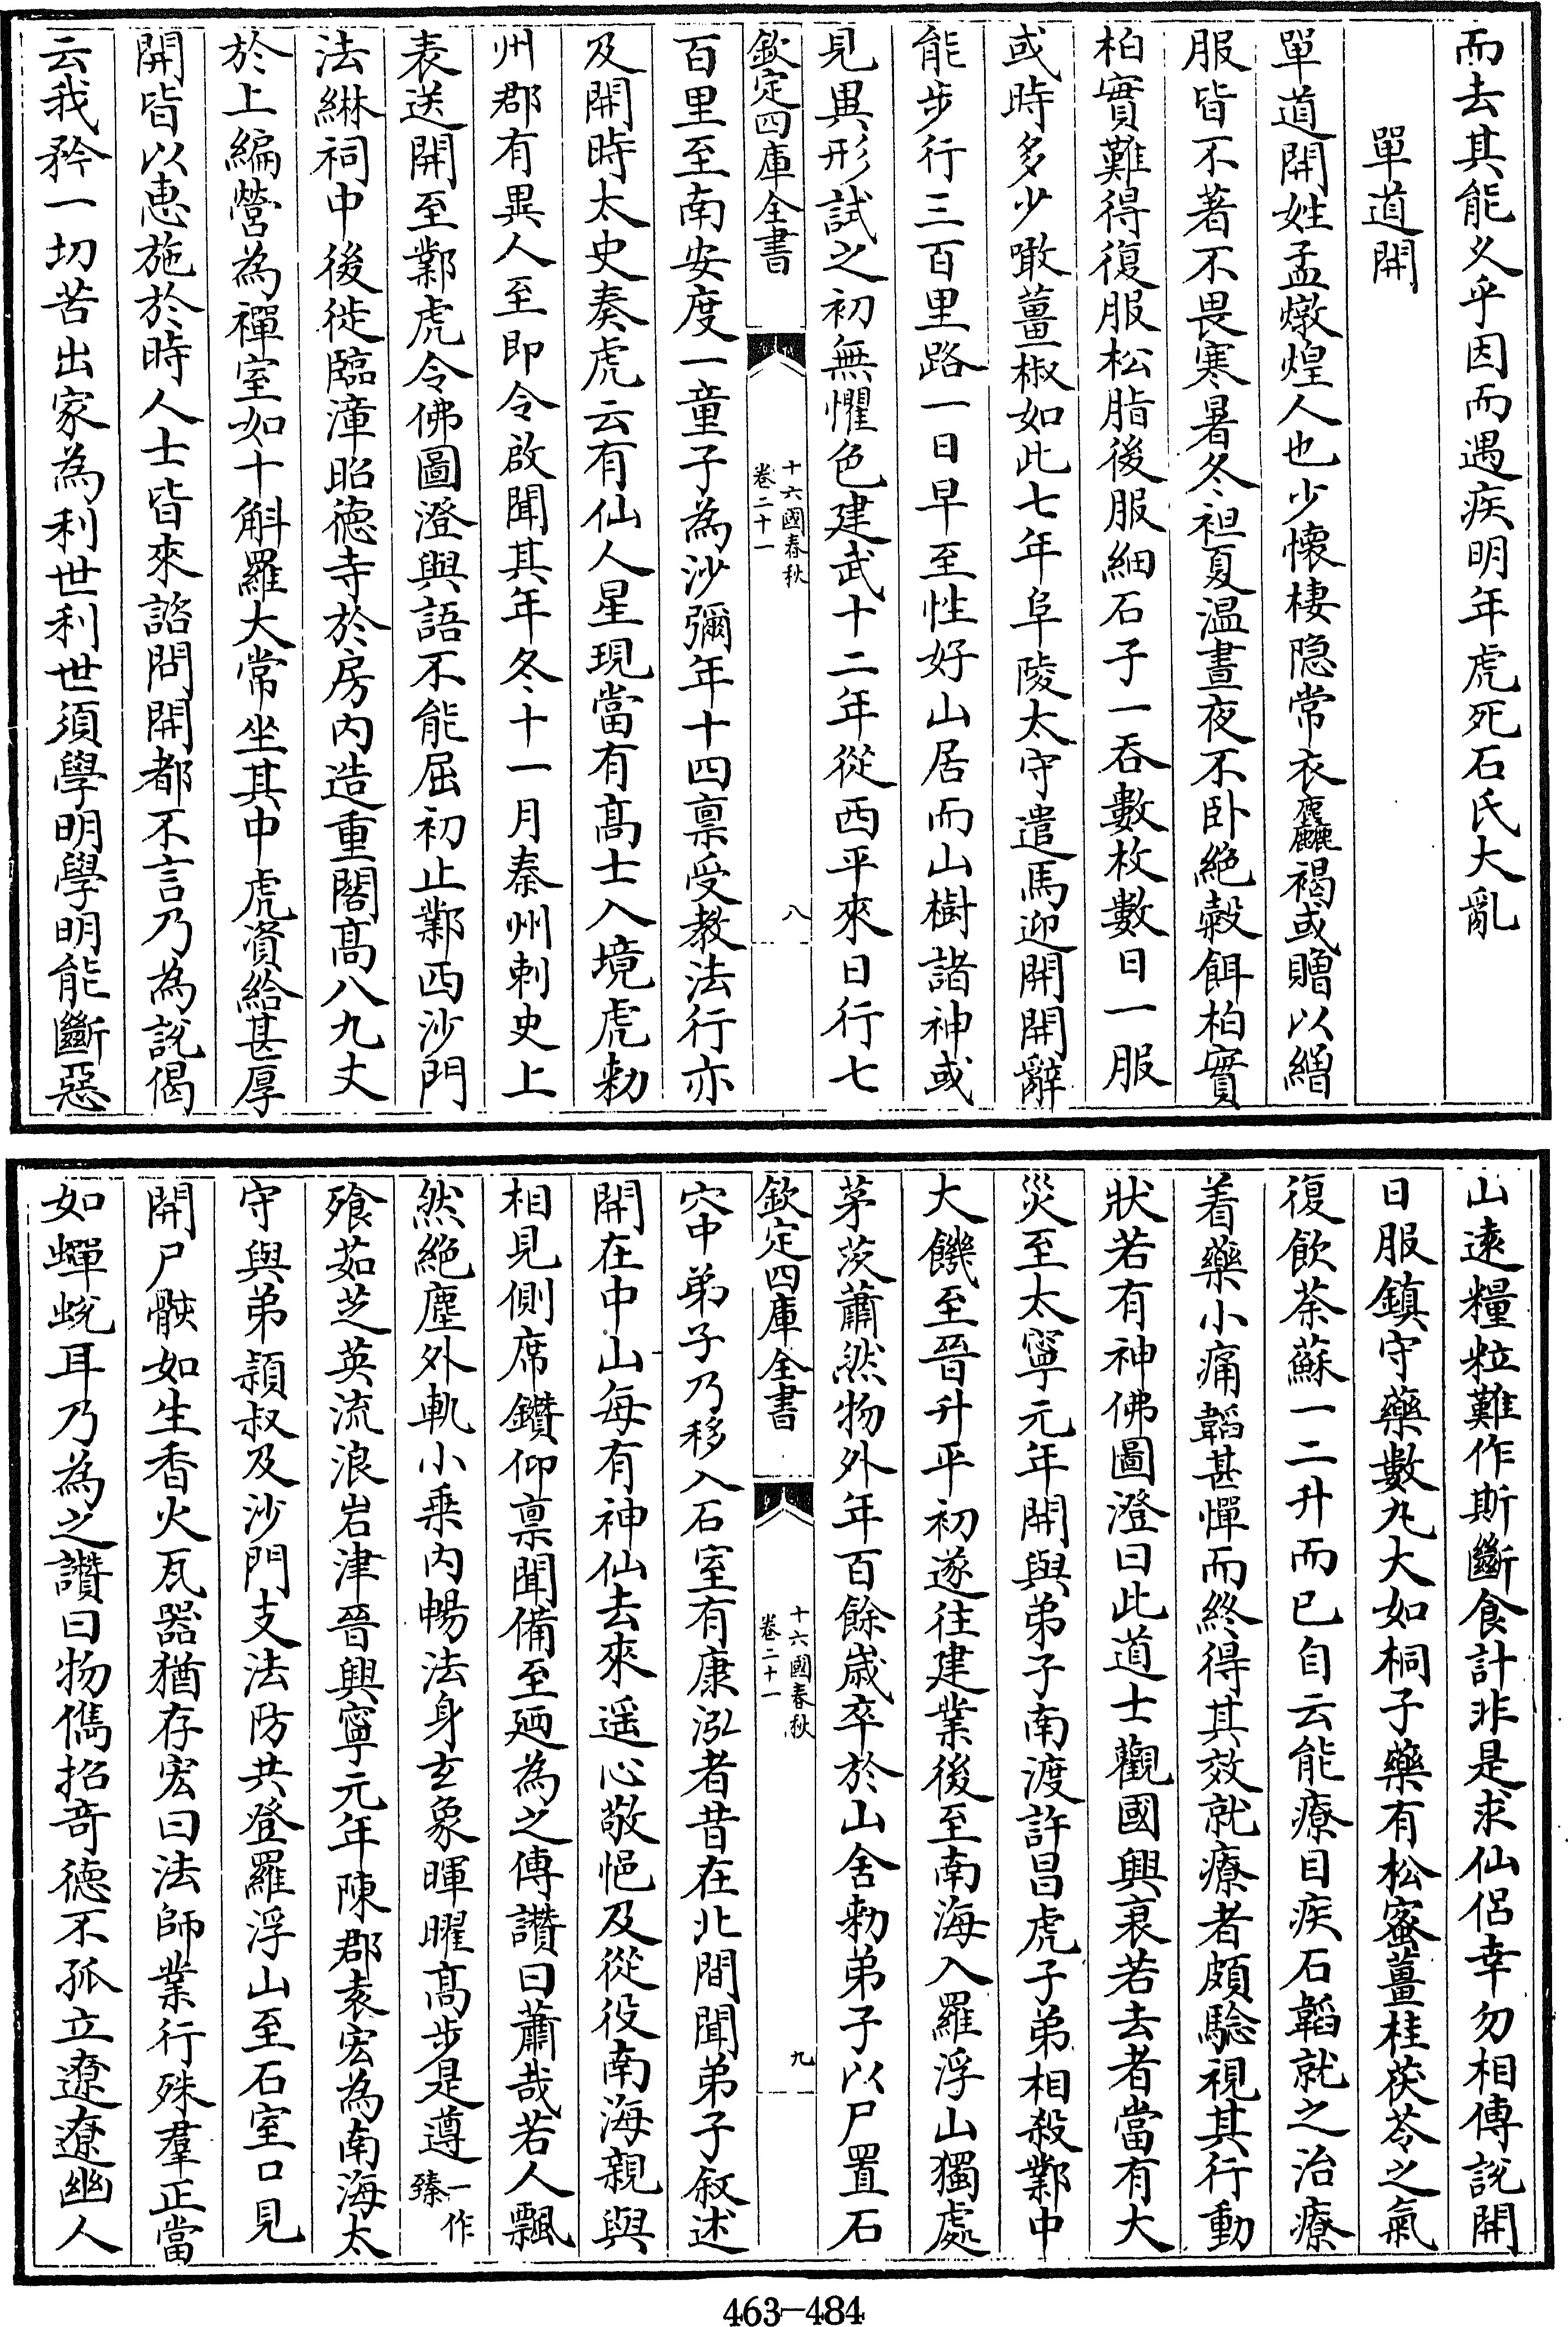 而去其能久乎因而遇疾明年虎死石氏大亂
單道開
單道開姓孟燉煌人也少懷棲隱常衣麤褐或贈以繒
服皆不著不畏寒暑冬袒夏温晝夜不卧絶穀餌柏實
柏實難得復服松脂後服細石子一吞數枚數日一服
或時多少噉薑椒如此七年阜陵太守遣馬迎開開辭
能步行三百里路一日早至性好山居而山樹諸神或
見異形試之初無懼色建武十二年從西平來日行七
欽定四庫全書
十六國春秋
卷二十一
八
百里至南安度一童子為沙彌年十四禀受教法行亦
及開時太史奏虎云有仙人星現當有髙士入境虎勅
州郡有異人至即令啟聞其年冬十一月秦州刺史上
表送開至鄴虎令佛圖澄與語不能屈初止鄴西沙門
法綝祠中後徙臨漳昭徳寺於房内造重閣髙八九丈
於上編營為禪室如十斛羅大常坐其中虎資給甚厚
開皆以惠施於時人士皆來諮問開都不言乃為説偈
云我矜一切苦出家為利世利世須學明學明能斷惡
山逺糧粒難作斯斷食計非是求仙侣幸勿相傳説開
日服鎮守藥數丸大如桐子藥有松蜜薑桂茯苓之氣
復飲茶蘇一二升而已自云能療目疾石韜就之治療
着藥小痛韜甚憚而終得其效就療者頗驗視其行動
狀若有神佛圖澄曰此道士觀國興衰若去者當有大
災至太寧元年開與弟子南渡許昌虎子弟相殺鄴中
大饑至晉升平初遂往建業後至南海入羅浮山獨處
茅茨蕭然物外年百餘歲卒於山舍勅弟子以尸置石
欽定四庫全書
十六國春秋
卷二十一
九
穴中弟子乃移入石室有康泓者昔在北間聞弟子叙述
開在中山每有神仙去來遥心敬悒及從役南海親與
相見側席鑽仰禀聞備至廼為之傳讚曰蕭哉若人飄
然絶塵外軌小乗内暢法身玄象暉曜髙步是遵一作臻
飱茹芝英流浪岩津晉興寧元年陳郡袁宏為南海太
守與弟頴叔及沙門支法防共登羅浮山至石室口見
開尸骸如生香火瓦器猶存宏曰法師業行殊羣正當
如蟬蛻耳乃為之讚曰物儁招奇徳不孤立遼遼幽人
463-484